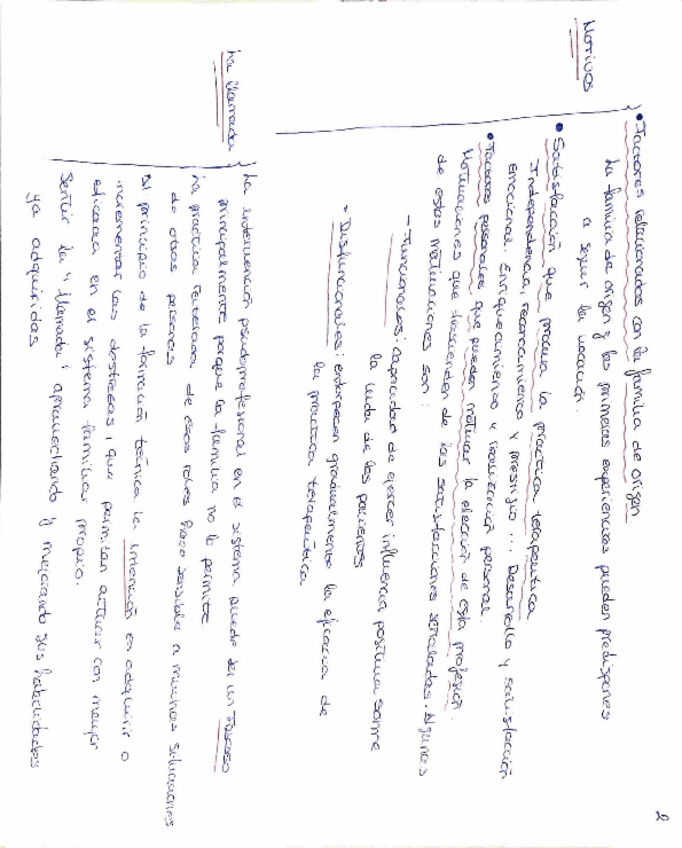 2
Motivos
• Factores relacionados con la familia de origen
La familia de origen y las primeras experiencias pueden predisponer
a seguir la vocación.
• Satisfacción que procura la practica terapeutica
Independencia, reconocimiento y prestigio... Desarrollo y satisfacción
emocional. Enriquecimiento y realización personal.
• Factores personales que pueden motivar la elección de esta profesión.
Motivaciones que trascienden de las satisfacciones señaladas. Algunas
de estas motivaciones son:
- Funcionales: Capacidad de ejercer influencia positiva sobre
la vida de los pacientes
- Disfuncionales: entorpecen gradualmente la eficacia de
la practica terapéutica
La llamada
La intervención pseudoprofesional en el sistema puede ser un fracaso
principalmente porque la familia no lo permite.
La practica reiterada de esos roles hace sensible a muchas situaciones
de otras personas
Al principio de la formación técnica la intención es adquirir o
incrementar las destrezas, que permitan actuar con mayor
eficacia en el sistema familiar propio.
Sentir la "llamada": aprovechando y mejorando sus habilidades
ya adquiridas